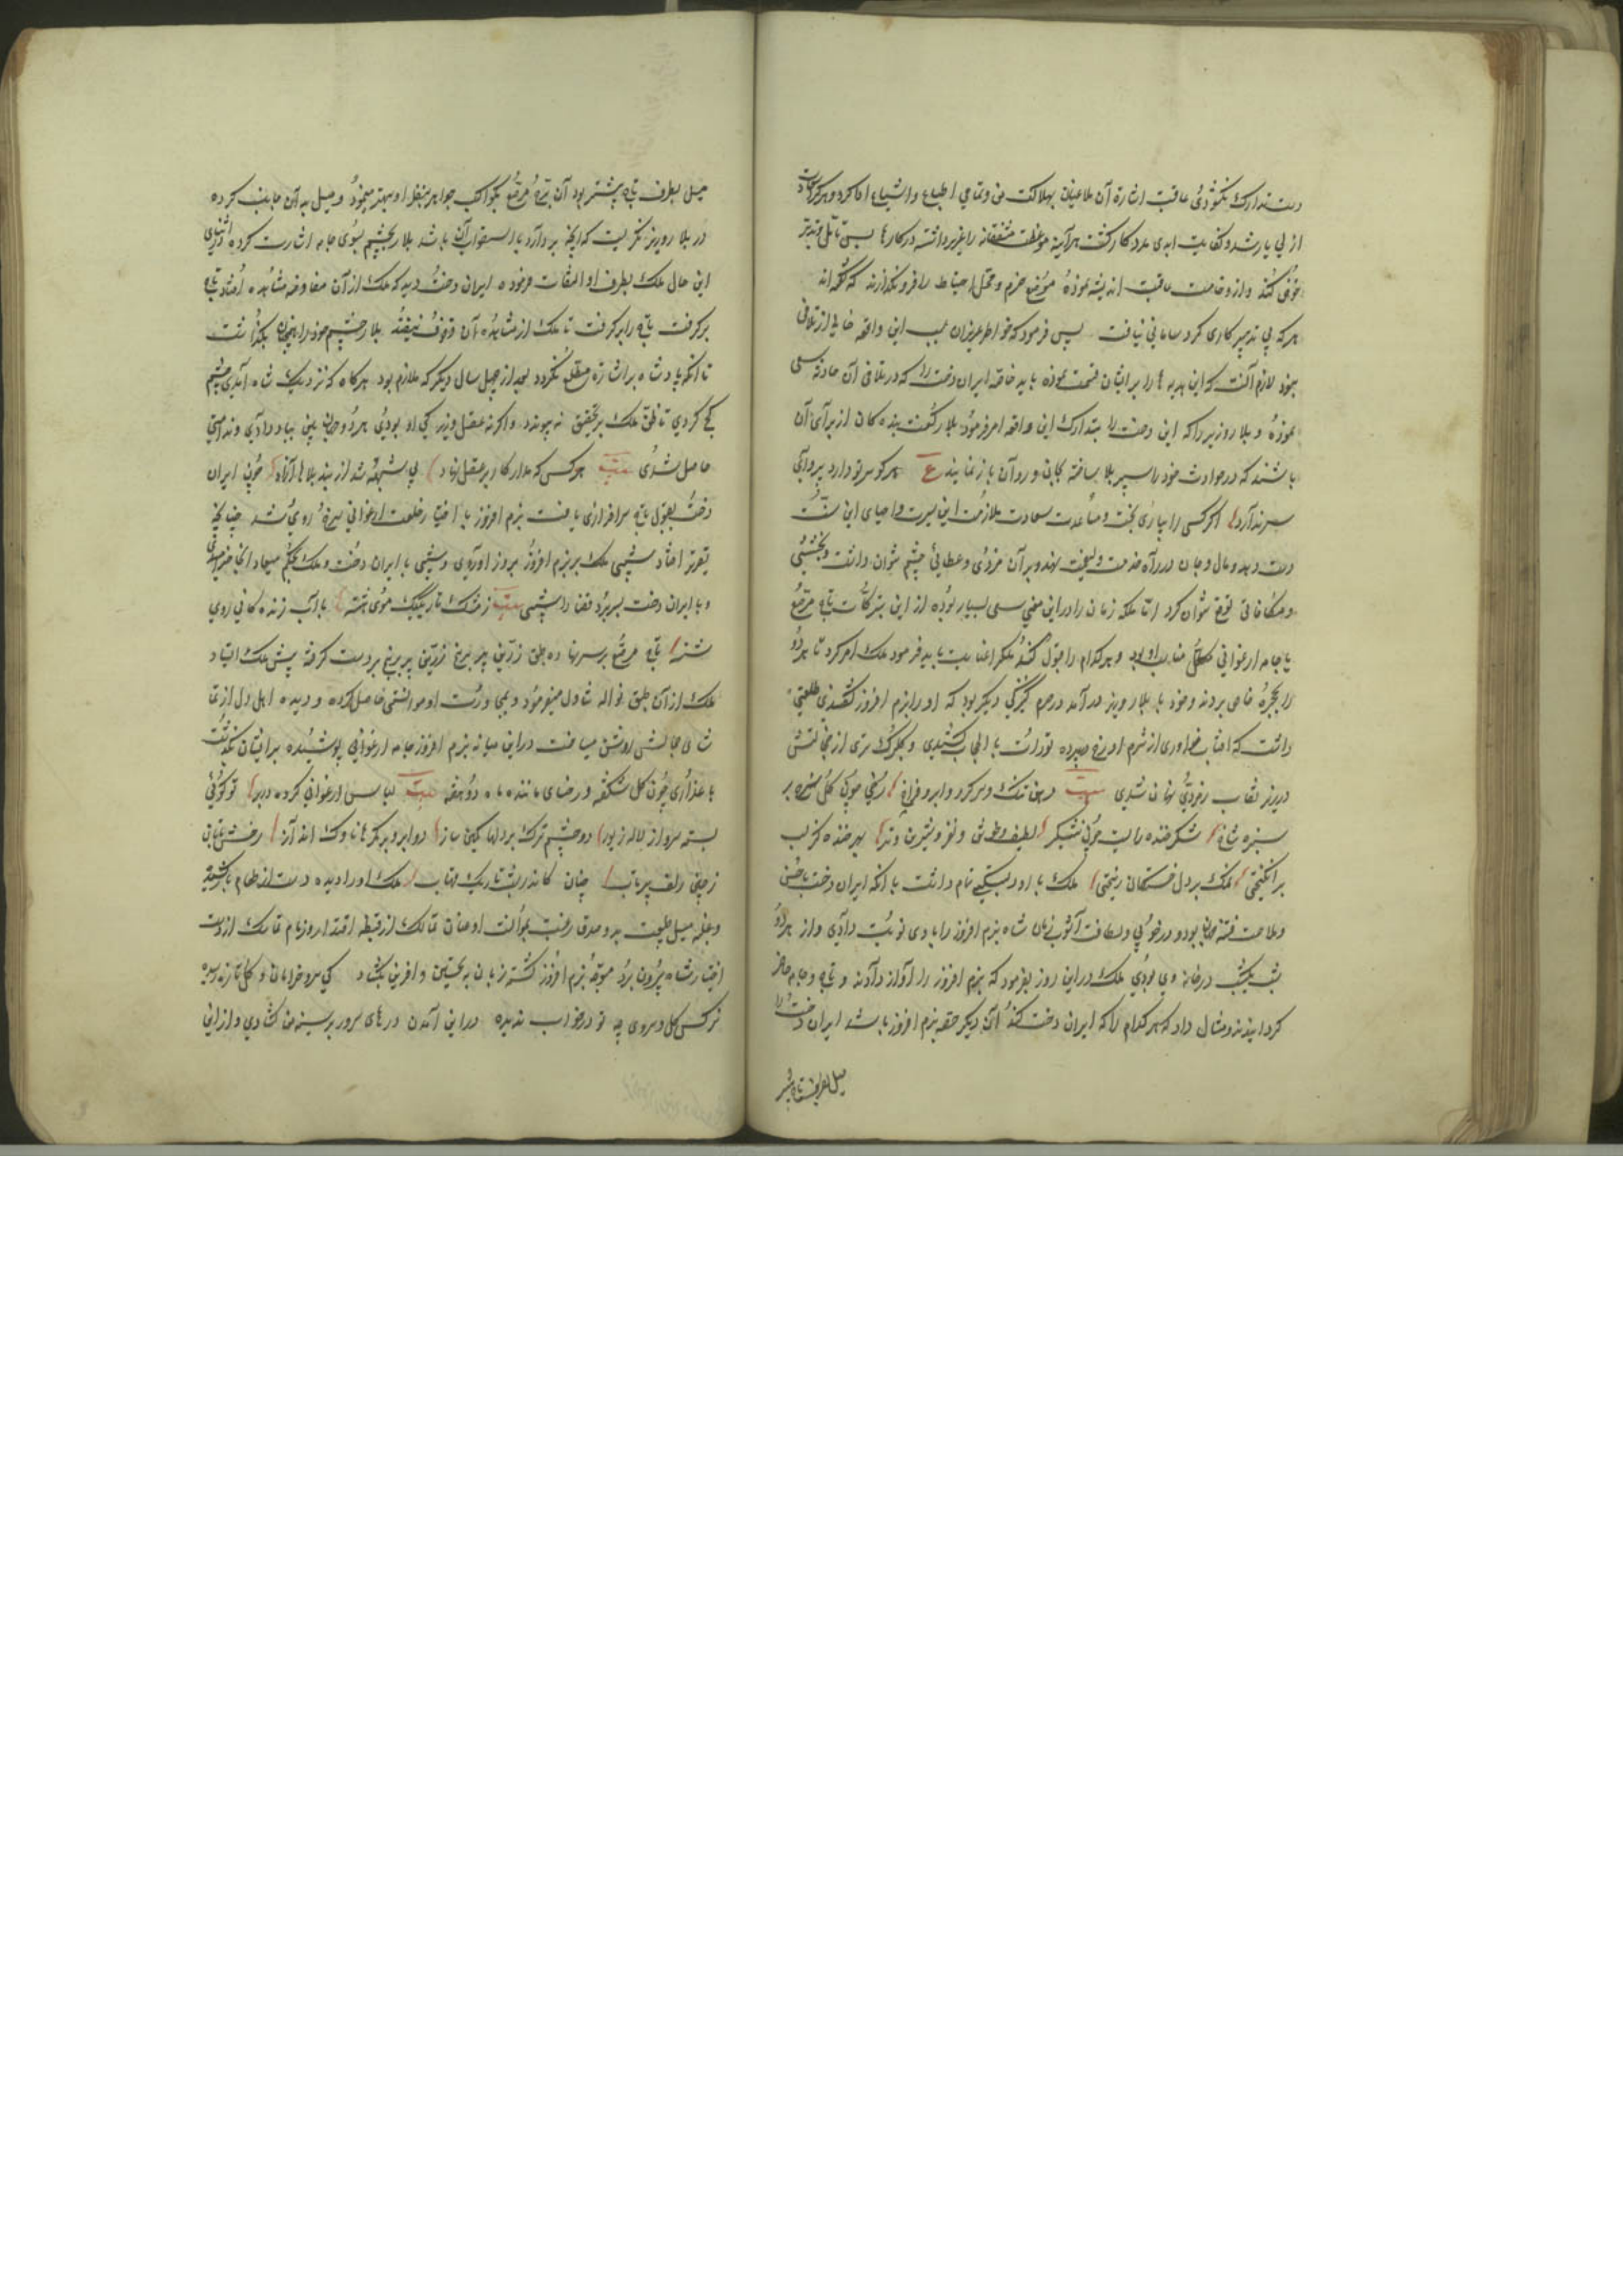 دست تدارک نکشودی عاقبت اشارة آن ملاعین بهلاکت من و تمامی اتباع و اشیاع ادا کردی و هر کرا سعادت
ازلی یار شد و کفایت ابدی مددکار گشت هرآینه موعظت مشفقانه را عزیز داشته در کارها بی تأمل و تدبر
خوض نکند و از وخامت عاقبت اندیشه نموده موضع حزم و محل احتیاط را فرو نگذارند که گفته‌اند
هر که بی تدبیر کاری کرد سامانی نیافت پس فرمود که خواطر عزیزان بسبب این واقعه خالی از تلافی
نبود لازم آنست که این هدیه ها را بر ایشان قسمت نموده باید خاصه ایران دخت را که در تلافی آن حادثه سعی
نموده و بلار وزیر را که این دخت را بتدارک این واقعه امر فرمود بلار گفت بندگان از برای آن
باشند که در حوادث خود را سپر بلا ساخته بجان و رو آن باز نمایند ع هر کو سر تو دارد پروای
سر ندارد اگر کسی را بیاری بخت و مساعدت سعادت ملازمت این سیرت و احیای این سنت
دست دهد و مال و جان در راه خدمت ولینعمت نهد و بر آن مزدی و عطائی چشم نتوان داشت و بخششی
و مکافاتی توقع نتوان کرد امّا ملکه زمان را درین معنی سعی بسیار بوده از این تبرکات تاج مرصّع
یا جامه ارغوانی مناسب او بود و هر کدام را قبول کند ملکرا عنایت باید فرمود ملک امر کرد تا هر دو
را بحجرهٔ خاص بردند و خود با بلار وزیر درآمد در حرم کنیزکی دیگر بود که او را بزم افروز گفتندی طلعتی
داشت که آفتاب خاوری از شرم او رخ در پرده تواری بالحجاب کشیدی و گلبرگ تری از خجالتش
در پرده نقاب زمردی نهان شدی بیت دهن تنگ و سر گرد و ابرو فراخ رخی چون گل سرخ بر
سبز شاخ شکر خنده را لب چو نیشکر لطیف و خوش و نغز و شیرین و تر بهر خنده کز لب
برانگیختی نمک بر دل خستگان ریختی ملک با او دلبستگی تمام داشت با آنکه ایران دخت با حسن
و ملاحت فتنه جهان بود و در خوبی و لطافت آشوب زمان شاه بزم افروز را با وی نوبت دادی و از هر دو
شب یکشب در خانه وی بودی ملک در این روز بفرمود که بزم افروز را آواز دادند و تاج و جامه حاضر
گردانیدند و مثال داد که هر کدام را که ایران دخت کند آن دیگر حصه بزم افروز باشد ایران دخت را
میل بطرف تاج بیشتر
میل بطرف تاج بیشتر بود آن تاج مرصع بکواکب جواهر بنظر او بهتر مینمود و میل به آن جانب کرده
در بلار وزیر نگریست که آنچه بردارد باستصواب آن باشد بلار بچشم بسوی جامه اشارت کرد در اثنای
این حال ملک بطرف او التفات فرموده ایران دخت دید که ملک از آن مفاوضه مشاهده افتاد تاج
برگرفت تاج را برگرفت تا ملک از مشاهده آن وقوف نیفتد بلار چشم خود را همچنان بگذاشت
تا آنکه پادشاه بر اشارة مطلع نگردد بعد از چهل سال دیگر که ملازم بود هرگاه که نزدیک شاه آمدی چشم
کج کردی تا ظنّ ملک بتحقیق نه پیوندد و اگر نه عقل وزیر و کید او بودی هر دو جان بباد دادی و ندامتی
حاصل شدی بیت هر کس که مدار کار بر عقل نهاد بی شبهه شد از بند بلاها آزاد چون ایران
دخت بقبول تاج سرافرازی یافت بزم افروز با اختیار خلعت ارغوانی سرخ روی شد چنانچه
تقریر افتاد شبی ملک ببزم افروز بروز آوردی و شبی با ایران دخت و ملک بحکم میعاد انجا خرامیدی
و با ایران دخت بسر برد قضا را شبی بیت ز مشک تاریک موی شسته بآب زندگانی روی
شسته تاج مرصع بر سر نهاده طبق زرین پر برنج زرین پر برنج بر دست گرفته پیش ملک ایستاد
ملک از آن طبق نواله تناول میفرمود و بمجاورت او موانستی حاصل کرده و دیده اهل دل از تما
شای جمالش روشن میساخت در این میانه بزم افروز جامه ارغوانی پوشیده بر ایشان بگذشت
با عذاری چون گل شکفته و رخساری مانند ماه دو هفته بیت لباس ارغوانی کرده در بر تو گوئی
بسته سرو از لاله زیور دو چشم ترک بر دلها کمین ساز دو ابرو بر جگرها ناوک انداز رخش تابان
ز چین زلف پر تاب چنان کاندر شب تاریک مهتاب ملک او را دیده دست از طعام باز کشید
و بغلبه میل طبیعت و صدق رغبت مجالست او عنان تمالک از قبضه اقتدار و زمام تماسک از دست
اختیار شاه بیرون برد متوجه بزم افروز گشته زبان به تحسین و آفرین بگشاد کی سرو خرامان و گل تازه سر
نرگس گل و سروی چه تو در خواب ندیده در این آمدن درهای سرور بر سینه من گشادی و از این